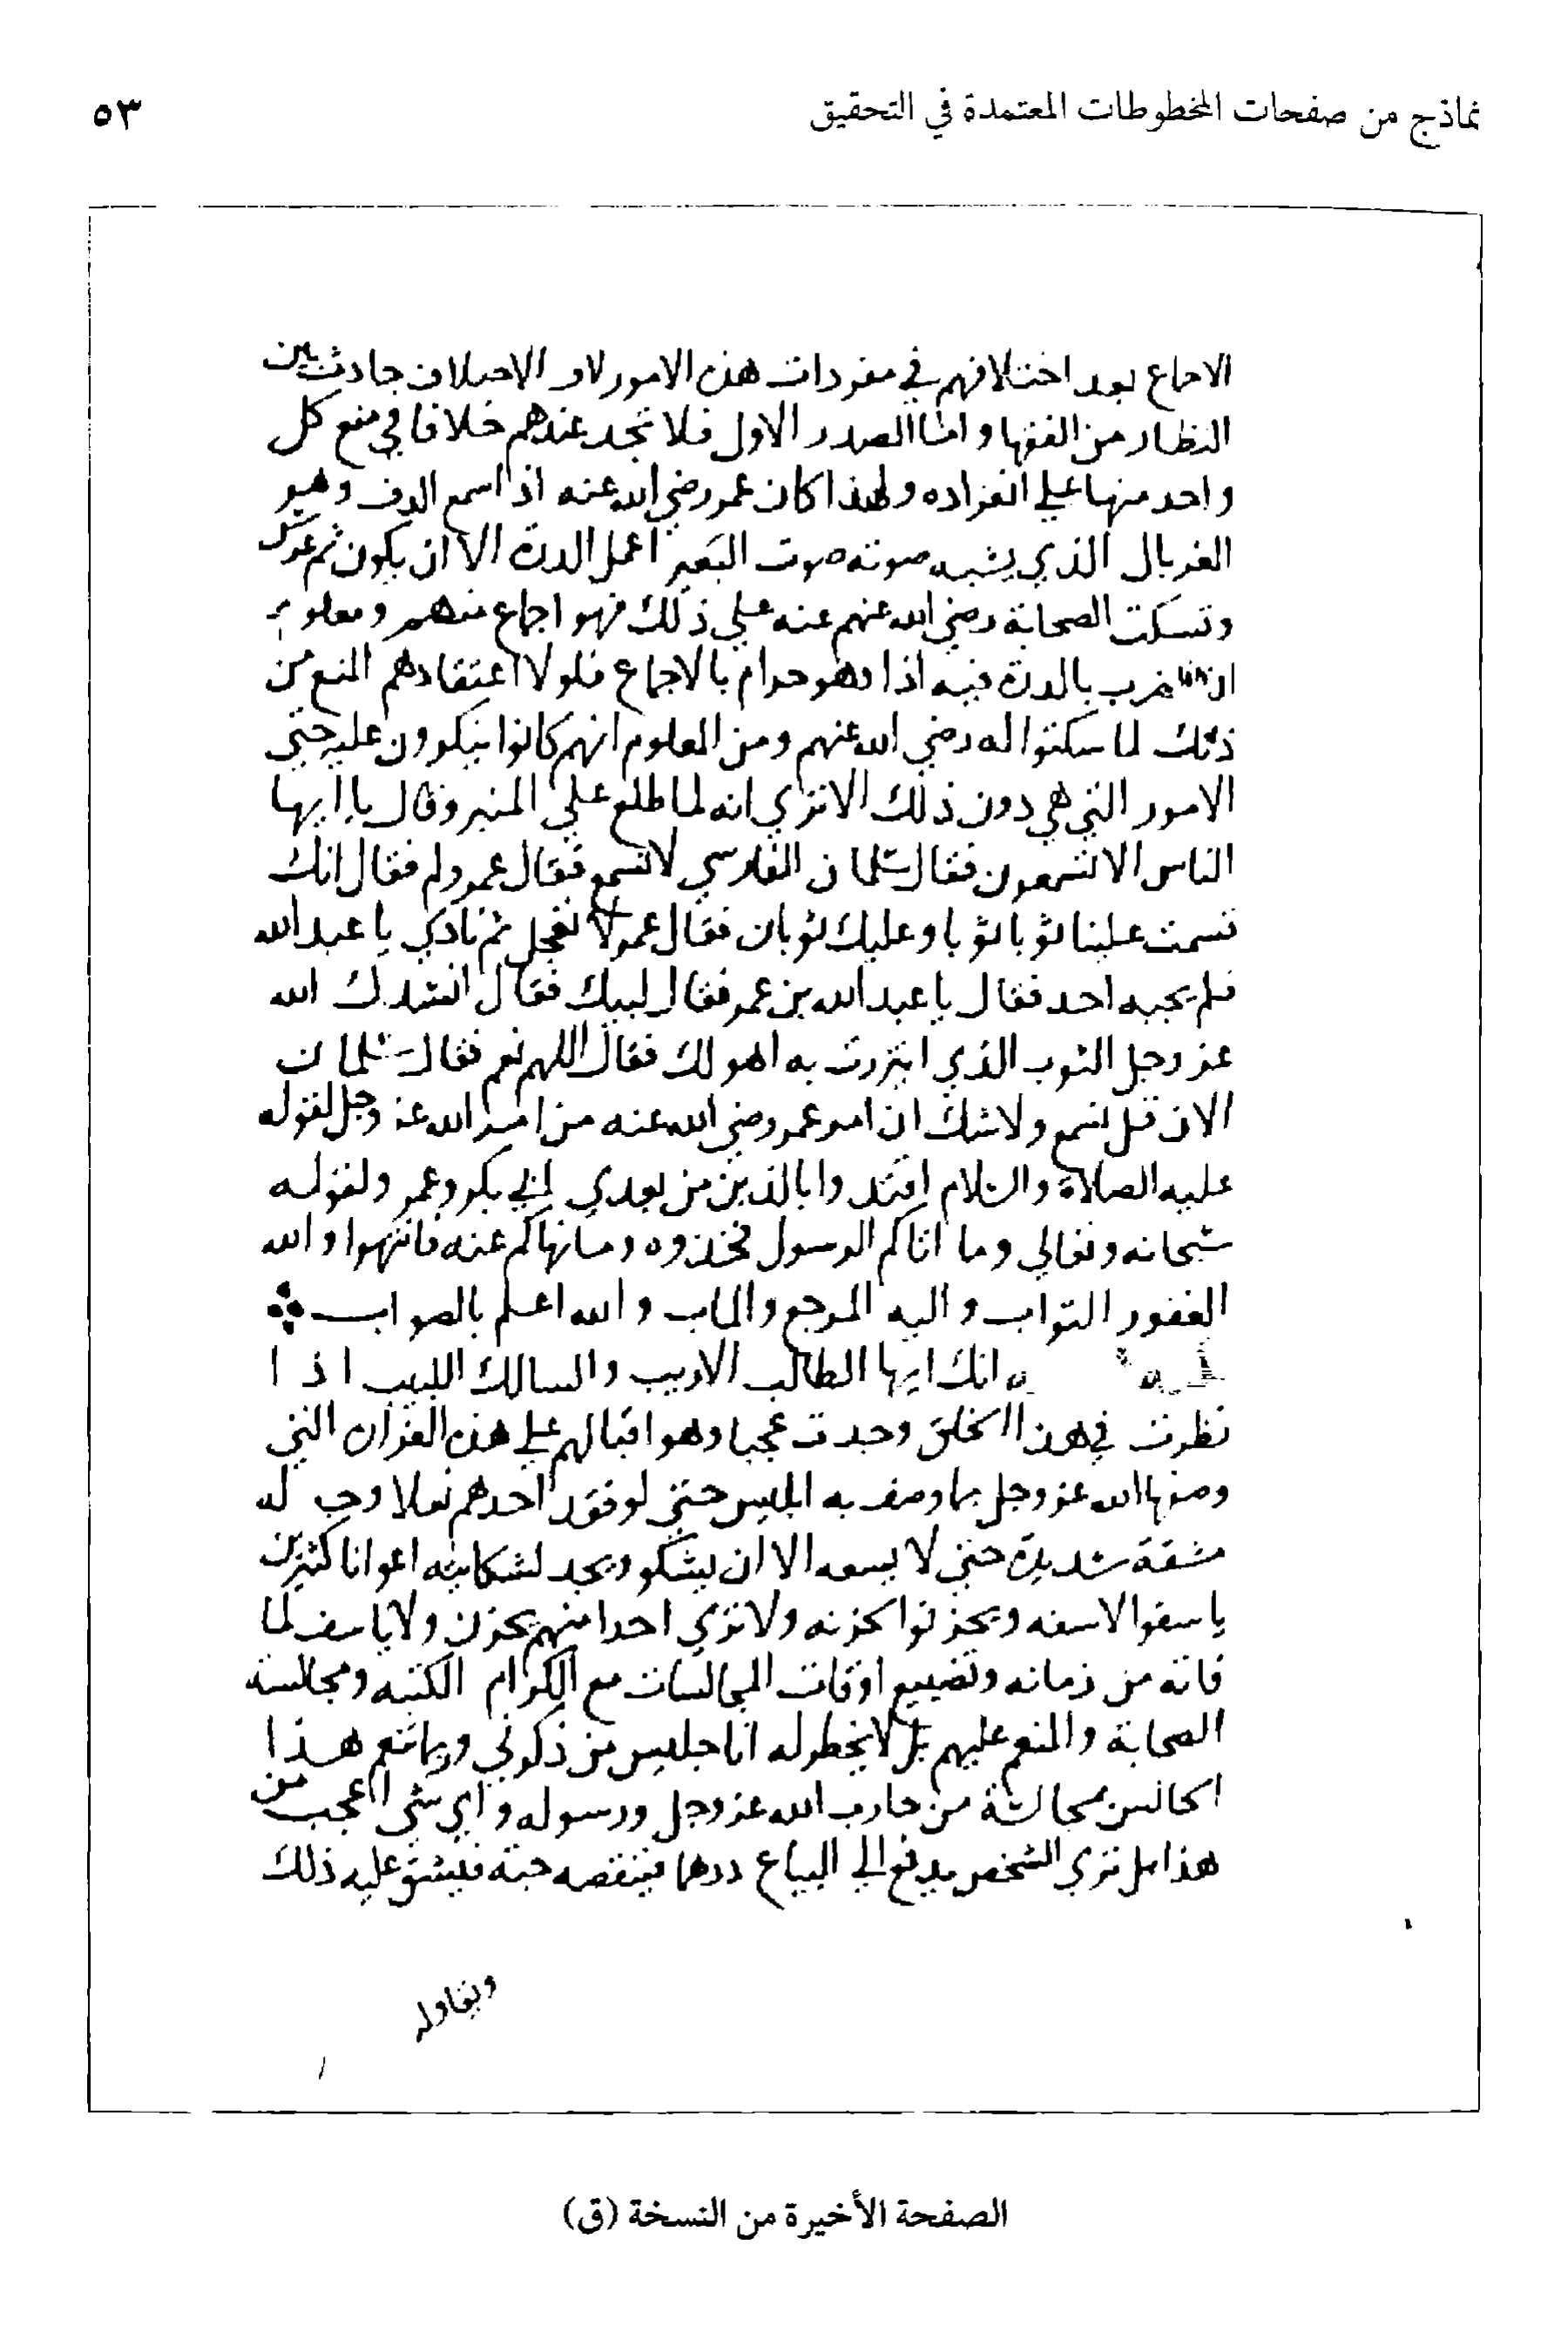 نماذج من صفحات المخطوطات المعتمدة في التحقيق
٥٣
الاجماع بعد اختلافهم في مفردات هذه الامور لان الاختلاف حادث بين
النظار من الفقها واما الصدر الاول فلا تجد عندهم خلافا في منع كل
واحد منها علي انفراده ولهذا كان عمر رضي الله عنه اذا سمع الدف وهو
الغربال الذي يشبه صوته صوت البعير اعمل الدرة الا ان يكون ثم عرس
وتسكت الصحابة رضي الله عنهم عنه علي ذلك فهو اجماع منهم ومعلوم
ان الضرب بالدرة فيه اذا وهو حرام بالاجماع فلولا اعتقادهم المنع من
ذلك لما سكتوا له رضي الله عنهم ومن المعلوم انهم كانوا ينكرون عليه حتي
الامور التي هي دون ذلك الا تري انه لما طلع علي المنبر وقال يا ايها
الناس الا تسمعون فقال سلمان الفارسي لا نسمع فقال عمر ولم فقال انك
قسمت علينا ثوبا ثوبا وعليك ثوبان فقال عمر لا تعجل ثم نادي يا عبد الله
فلم يجبه احد فقال يا عبد الله بن عمر فقال لبيك فقال انشدك الله
عز وجل الثوب الذي ائتزرت به اهو لك فقال اللهم نعم فقال سلمان
الان قل نسمع ولا شك ان امر عمر رضي الله عنه من امر الله عز وجل لقوله
عليه الصلاة والسلام اقتدوا بالذين من بعدي ابي بكر وعمر ولقوله
سبحانه وتعالي وما اتاكم الرسول فخذوه وما نهاكم عنه فانتهوا والله
الغفور التواب واليه المرجع والماب والله اعلم بالصواب
انك ايها الطالب الاريب والسالك اللبيب اذا
نظرت في هذا الخلق وجدت عجبا وهو اقبالهم علي هذه الغرار التي
وصفها الله عز وجل بما وصف به ابليس حتي لو فقد احدهم نعلا وجب له
مشقة شديدة حتي لا يسعه الا ان يشكو ويجد لشكايته اعوانا كثيرين
ياسفوا لاسفه ويحزنوا لحزنه ولا تري احدا منهم يحزن ولا ياسف لما
فاته من زمانه وتضييع اوقات المجالسات مع الكرام الكتبه ومجالسة
الصحابة والمنع عليهم بل لا يخطر له انا جليس من ذكرني وربما تمتع هذا
الجالس بمجالسة من حارب الله عز وجل ورسوله واي شي اعجب من
هذا بل تري الشخص يدفع الي البياع درهما فينقصه حبة فيشق عليه ذلك
الصفحة الأخيرة من النسخة (ق)